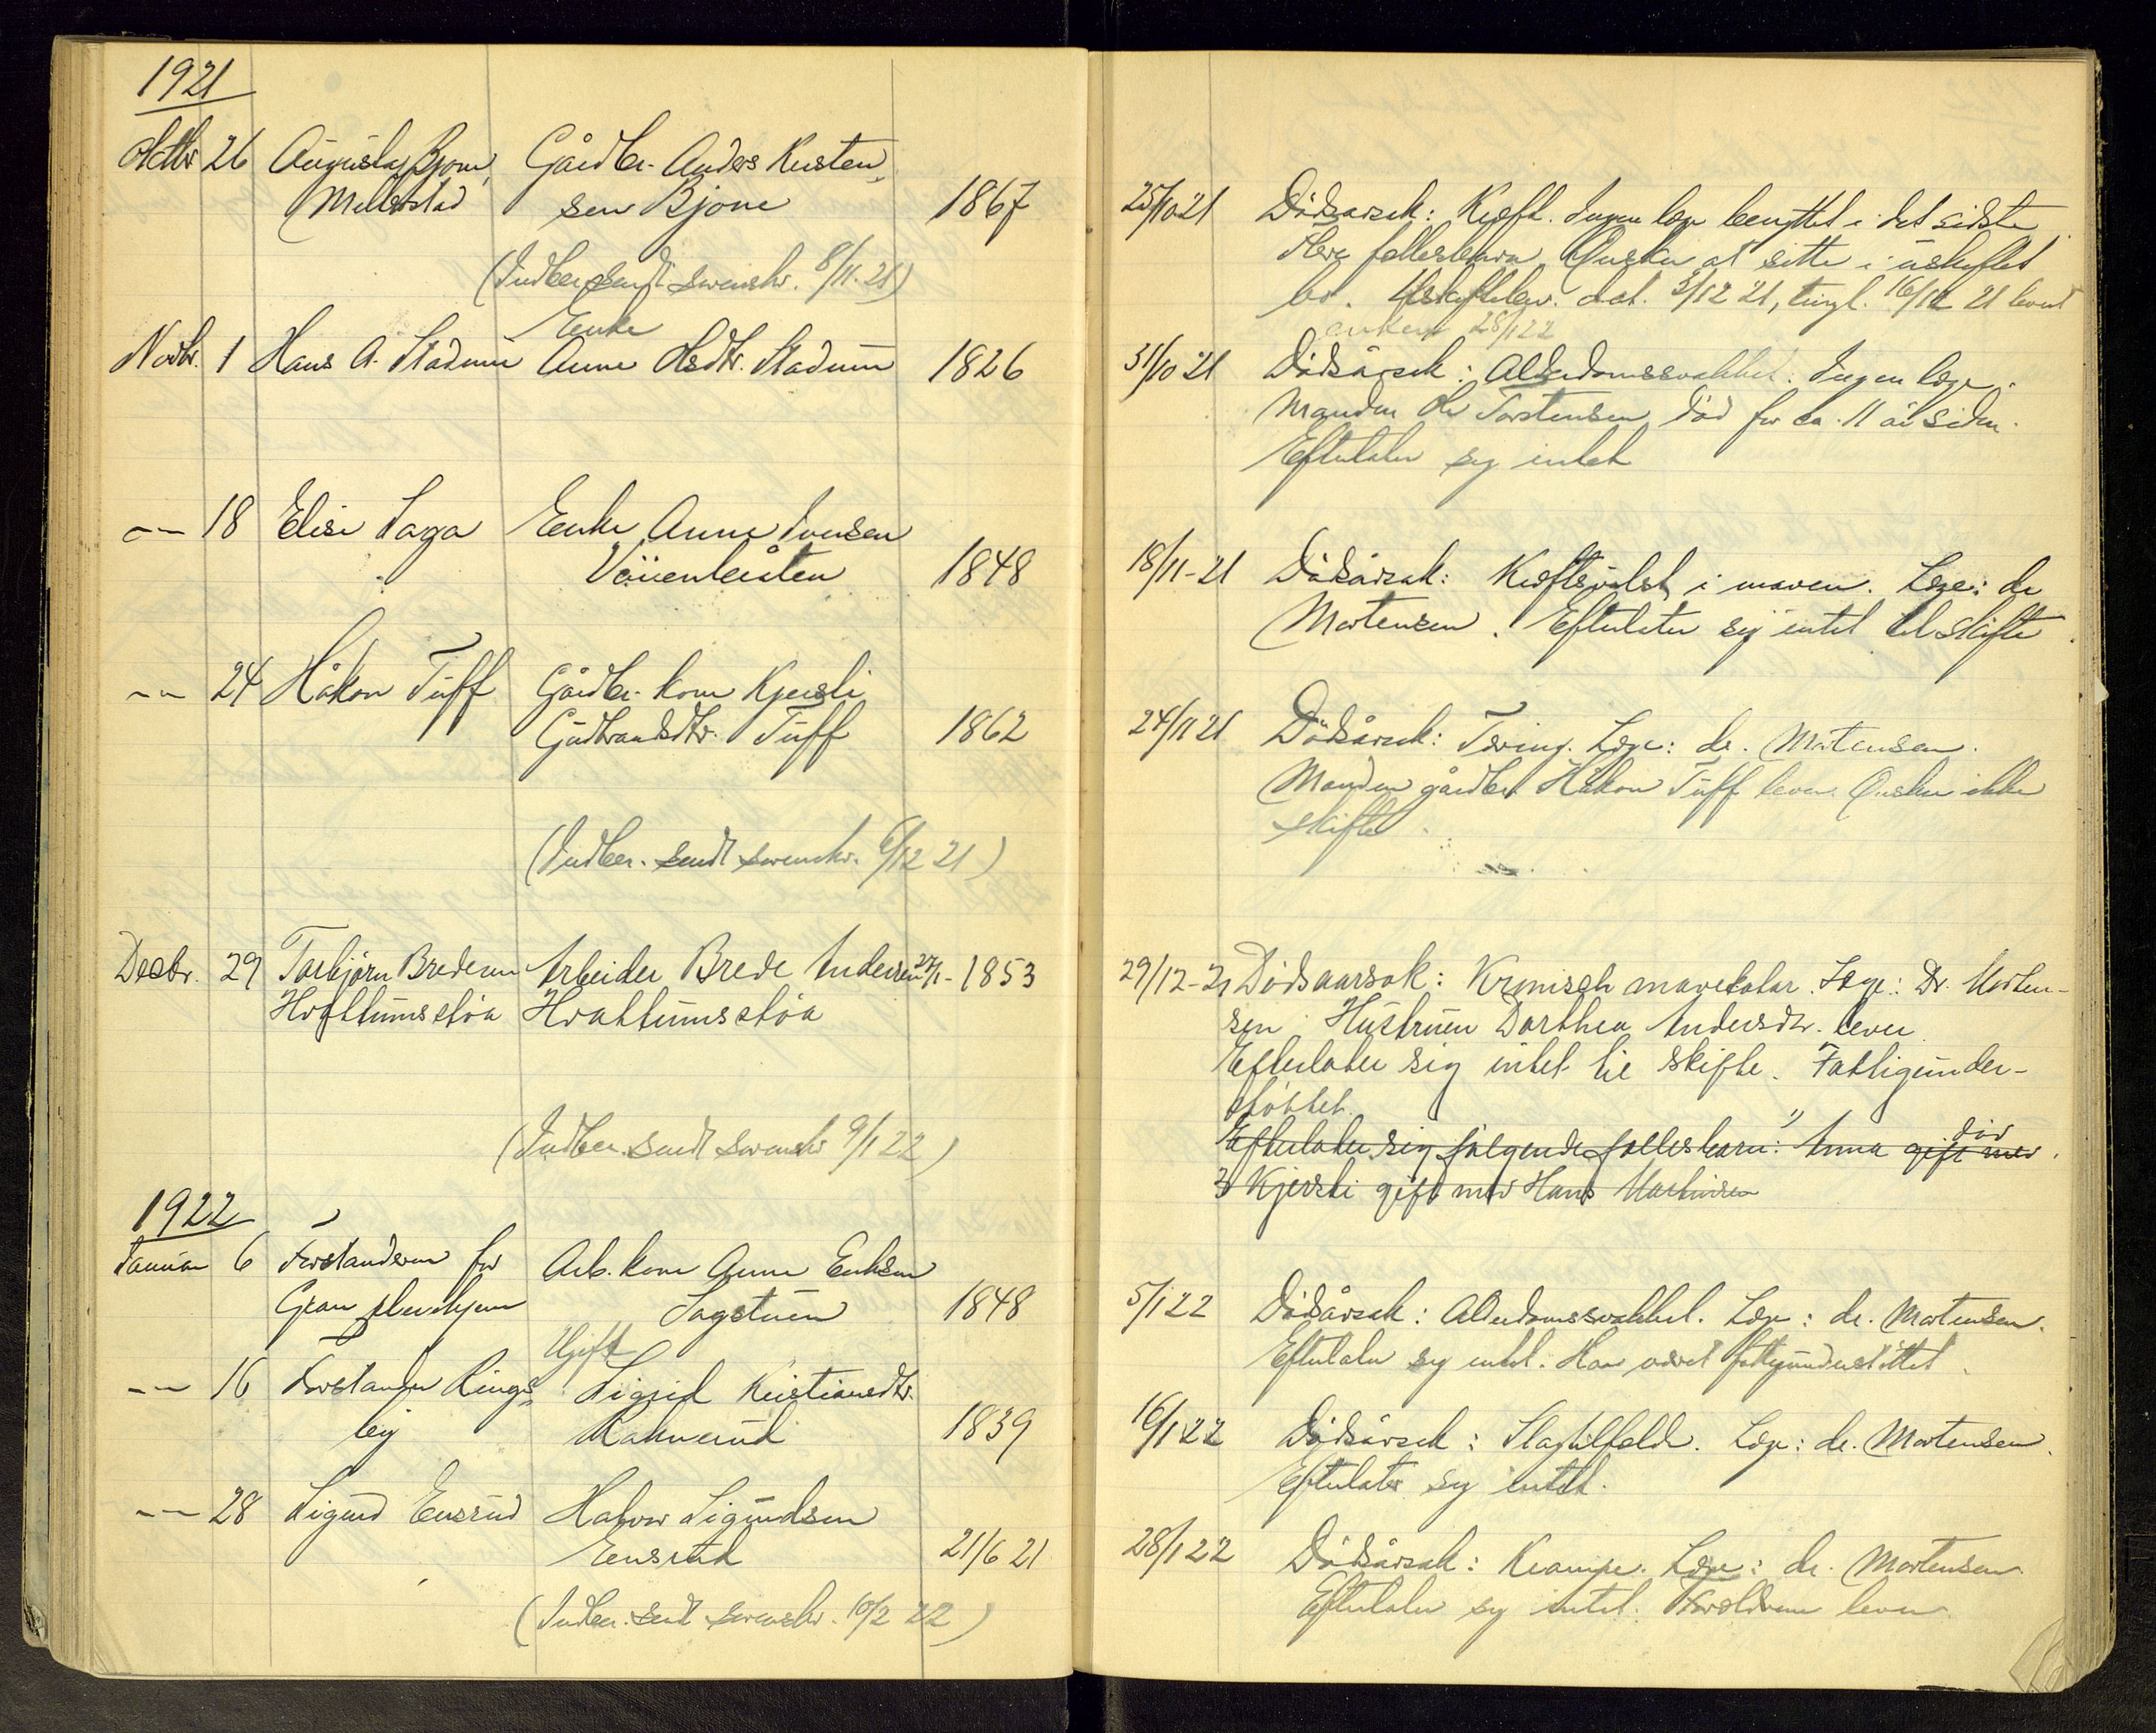 1921
Oktbr 26 Augusta Bjone, Gårdbr. Anders Kristen-
Mellerstad sen Bjone 1867
(Indber. sendt sorenskr. 8/11-21)
Enke
Novbr. 1 Hans A. Stadum Anne Olsdtr. Stadum 1826
-"- 18 Elise Haga Enke Anne Iversen
Vøienbråten 1848
-"- 24 Håkon Tuff Gårdbr. kone Kjersti
Gudbrandsdtr. Tuff 1862
(Indber. sendt sorenskr. 6/12 21)
Desbr. 29 Torbjørn Bredesen Arbeider Brede Andersen 27/1-1853
Hvattumsstøa Hvattumsstøa
(Indber. sendt sorenskr 9/1 22)
1922
Januar 6 Forstanderen for Arb. kone Anne Eriksen
Gran pleiehjem Sagstuen 1848
Ugift
-"- 16 Forstander Rings- Sigrid Kristiansdtr.
by Raknerud 1839
-"- 28 Sigurd Ensrud Halvor Sigurdsen
Ensrud 21/6 21
(Indber. sendt sorenskr. 10/2 22)
25/10 21 Dødsårsak: Kræft. Ingen læge benyttet i det sidste
flere fellesbarn. Ønsker at sitte i uskiftet
bo. Uskiftebev. dat. 3/12 21, tingl. 16/12 21 levert
enken 28/1 22
31/10 21 Dødsårsak: Alderdomssvakhet. Ingen læge.
Manden Ole Torstensen død for ca. 11 år siden.
Efterlater sig intet
18/11-21 Dødsårsak: Kræftsvulst i maven. Læge: dr
Mortensen. Efterlater sig intet til skifte.
24/11 21 Dødsårsak: Tæring. Læge: dr. Mortensen.
Manden gårdbr. Håkon Tuff lever. Ønsker ikke
skifte.
29/12-21 Dødsaarsak: Kronisch mavekatar. Læge: Dr. Morten-
sen. Hustruen Dorthea Andersdtr. lever
Efterlater sig intet til skifte. Fattigunder-
støttet.
død
Efterlater sig følgende fellesbarn: 1) Anna gift med
3 Kjersti gift med Hans Martinsen
5/1 22 Dødsårsak: Alderdomssvakhet. Læge: dr. Mortensen.
Efterlater sig intet. Har været fattigunderstøttet.
16/1 22 Dødsårsak: Slagtilfælde. Læge: dr. Mortensen.
Efterlater sig intet.
28/1 22 Dødsårsak: Krampe. Læge: dr. Mortensen.
Efterlater sig intet. Forældrene lever.